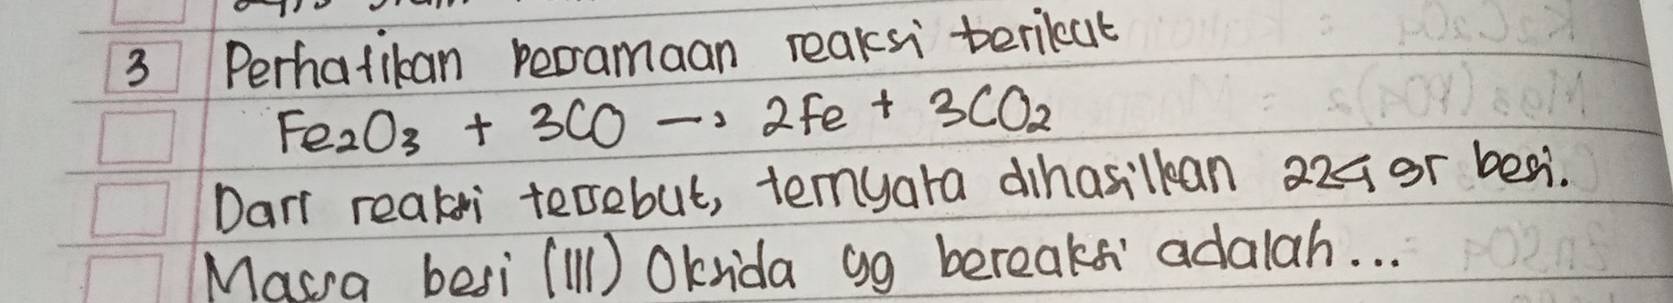 3 Perhatikan persamaan reaksi berikut
Fe2O3 + 3CO → 2Fe + 3CO2
Dari reaksi tersebut, ternyata dihasilkan 224 gr besi.
Massa besi (III) Oksida yg bereaksi adalah...